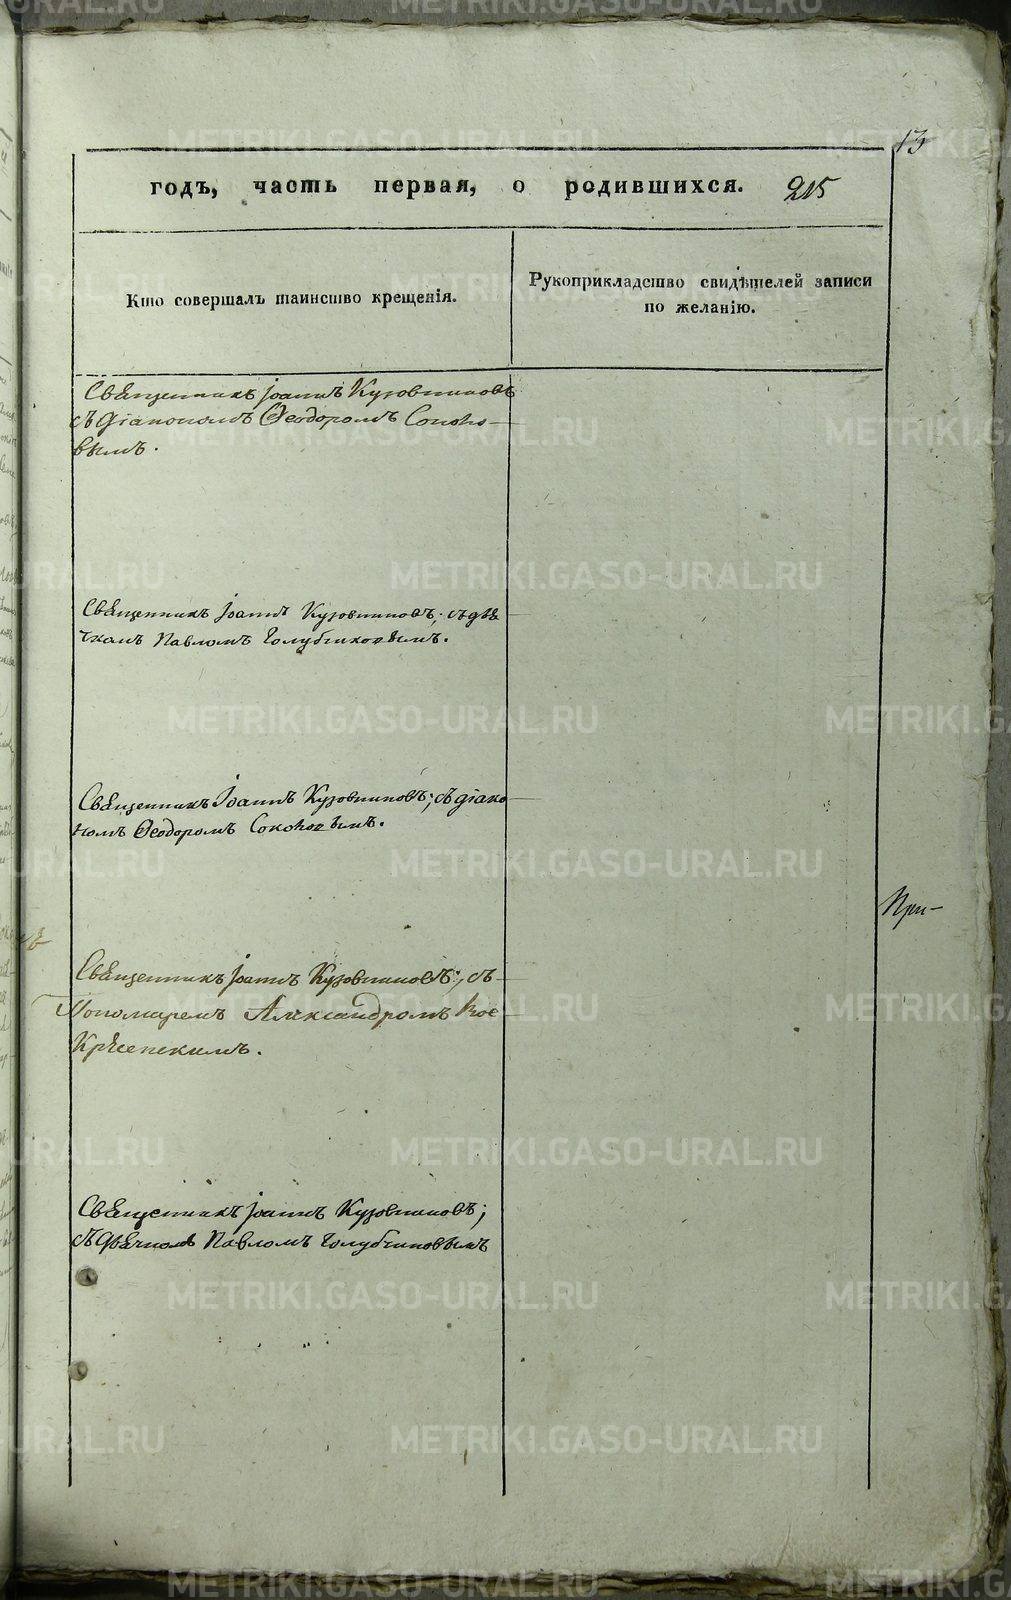 13
годъ, часть первая, о родившихся. 215
Кто совершалъ таинство крещенія.
Рукоприкладство свидѣтелей записи
по желанію.
Священникъ Іоаннъ Кузовниковъ
съ діакономъ Ѳеодоромъ Соколо-
вымъ.
Священникъ Іоаннъ Кузовниковъ; съ дья
чкомъ Павломъ Голубчиковымъ.
Священникъ Іоаннъ Кузовниковъ; съ діако
номъ Ѳеодоромъ Соколовымъ.
При-
Священникъ Іоаннъ Кузовниковъ; съ
Пономаремъ Александромъ Вос
кресенскимъ.
Священникъ Іоаннъ Кузовниковъ;
съ Дьячкомъ Павломъ Голубчиковымъ
METRIKI.GASO-URAL.RU